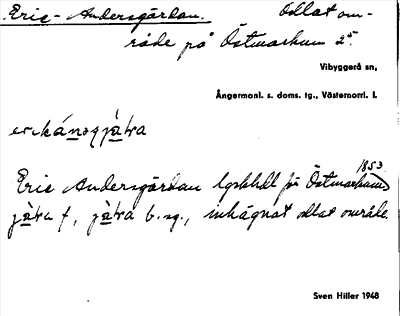 Eric-Andersgärdan. Odlat om-
råde på Östmarkum 2⁵.
Vibyggerå sn,
Ångermanl. s. doms. tg., Västernorrl. l.
1853
Eric Andersgärdan för Östmarkum
f, b. sg., inhägnat odlat område.
Sven Hiller 1948